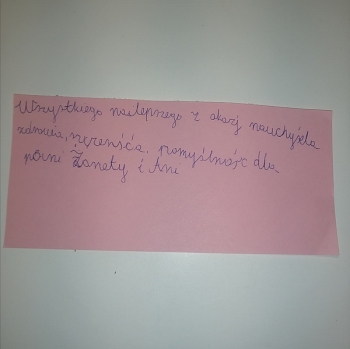 Wszystkiego nasleprzego z okazj nauchyciela
zdrowia, szczenśća, pomyślnośc dla
pani Żanety i Ani